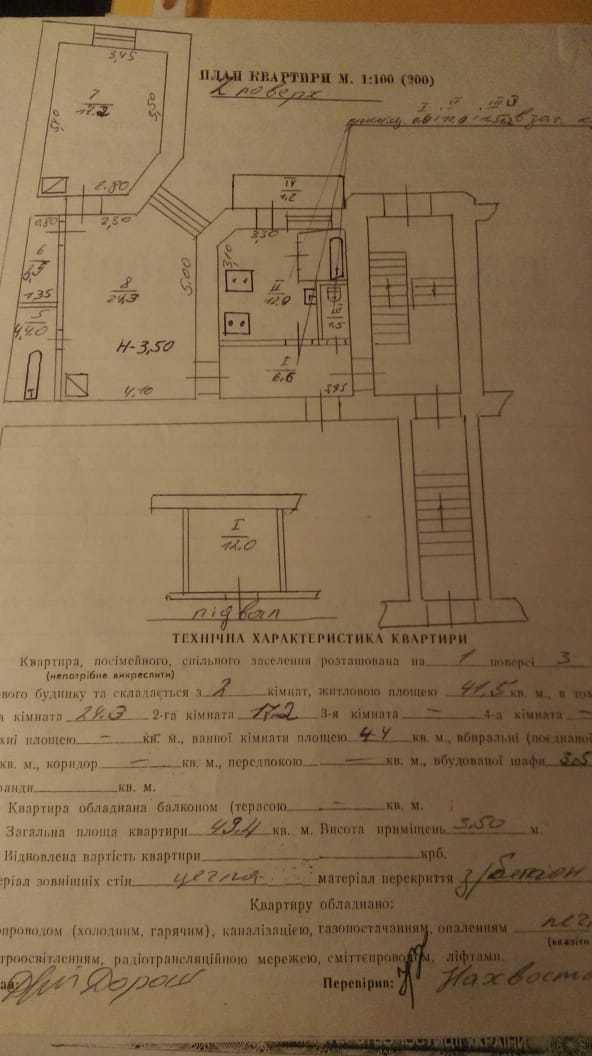 ПЛАН КВАРТИРИ М. 1:100 (200)
2 поверх
I II III
3,45
7
17.2
5,50
2.80
2,50
0,80
6
3,5
1,35
5
4,40
8
24,3
5,00
Н-3,50
4,10
IV
1.2
3,50
3,10
II
12.0
III
1.5
I
6,6
3,95
I
12.0
підвал
ТЕХНІЧНА ХАРАКТЕРИСТИКА КВАРТИРИ
Квартира, посімейного, спільного заселення розташована на 1 поверсі 3
(непотрібне викреслити)
вого будинку та складається з 2 кімнат, житловою площею 41,5 кв. м., в том
а кімната 24.3 2-га кімната 17.2 3-я кімната — 4-а кімната —
хні площею — кв. м., ванної кімнати площею 4.4 кв. м., вбиральні (поєднаної
кв. м., коридор — кв. м., передпокою — кв. м., вбудованої шафи 3.5
ранди кв. м.
Квартира обладнана балконом (терасою — кв. м.
Загальна площа квартири 49.4 кв. м. Висота приміщень 3.50 м.
Відновлена вартість квартири крб.
еріал зовнішніх стін цегла матеріал перекриття з/бетон
Квартиру обладнано:
опроводом (холодним, гарячим), каналізацією, газопостачанням, опаленням печн
(вказати
троосвітленням, радіотрансляційною мережею, сміттєпроводом, ліфтами.
Дорош Перевірив: Нахвоста